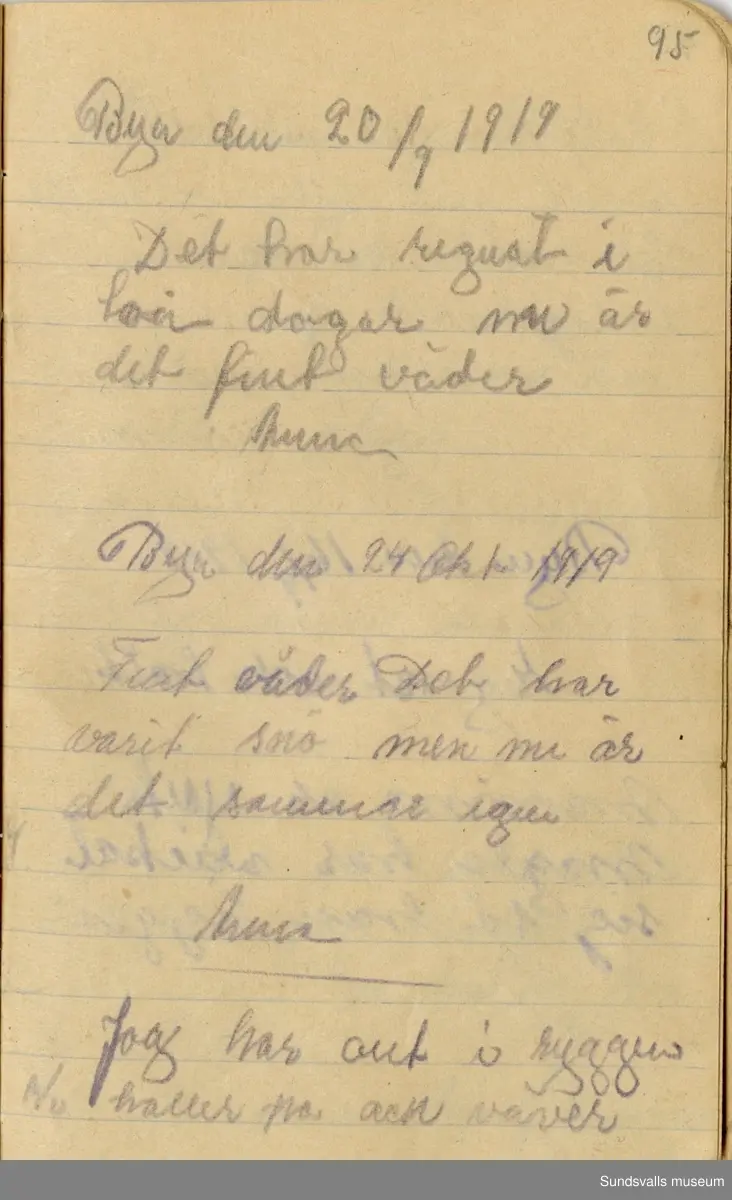 95
Byn den 20/9 1919
Det har regnat i
två dagar nu är
det fint väder
Anna
Byn den 24 Okt 1919
Fint väder Det har
varit snö men nu är
det sommar igen
Anna
Jag har ont i ryggen
håller på ock väver
Sundsvalls museum